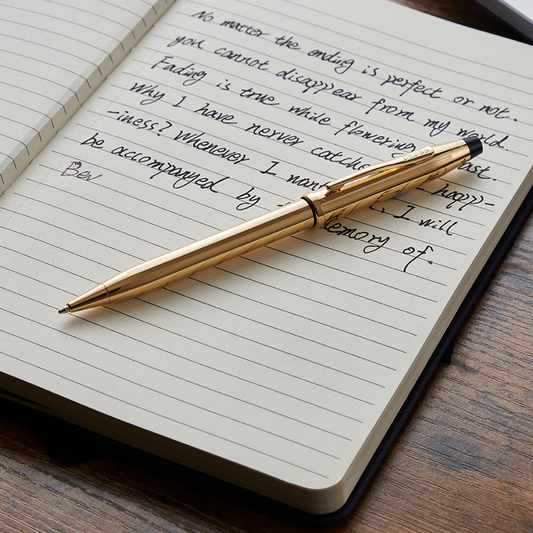 No matter the ending is perfect or not.
you cannot disappear from my world.
Fading is true while flowering past.
Why I have nerver catched happ-
-iness? Whenever I I will
be accompanyed by memory of.
Bev